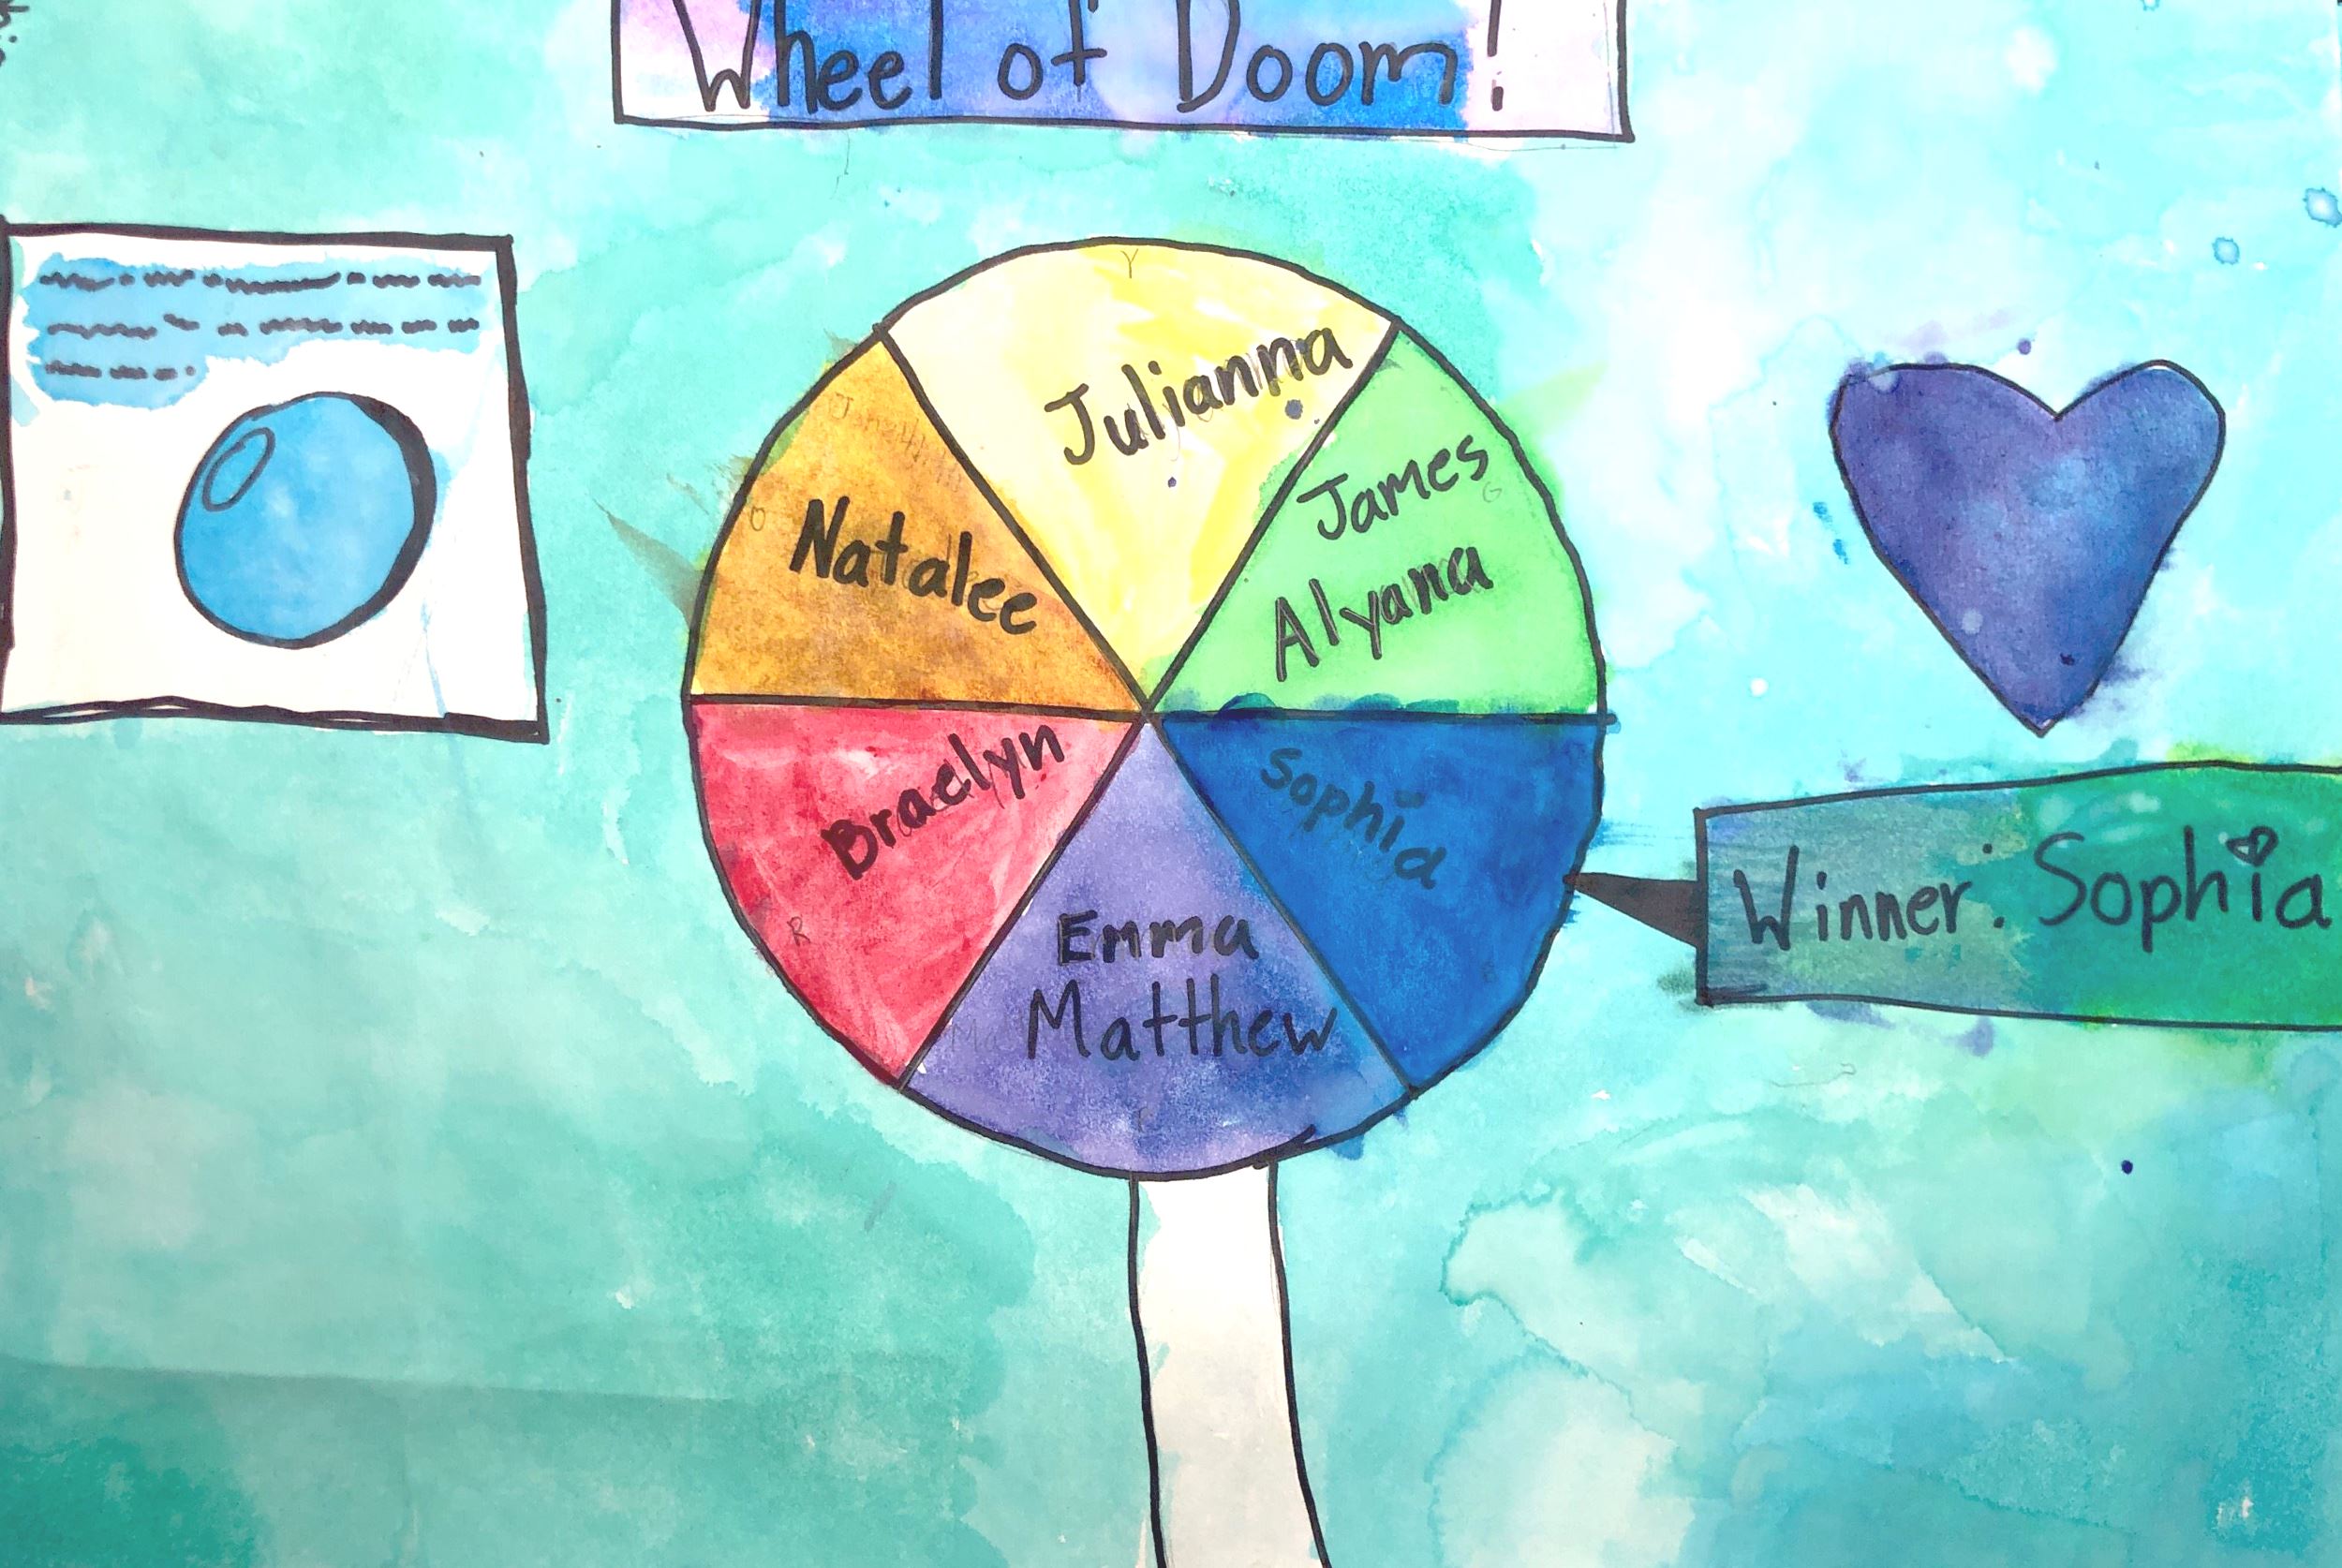 Wheel of Doom!
Julianna
James
Alyana
Natalee
Sophia
Braelyn
Emma
Matthew
Winner: Sophia
Y
G
O
R